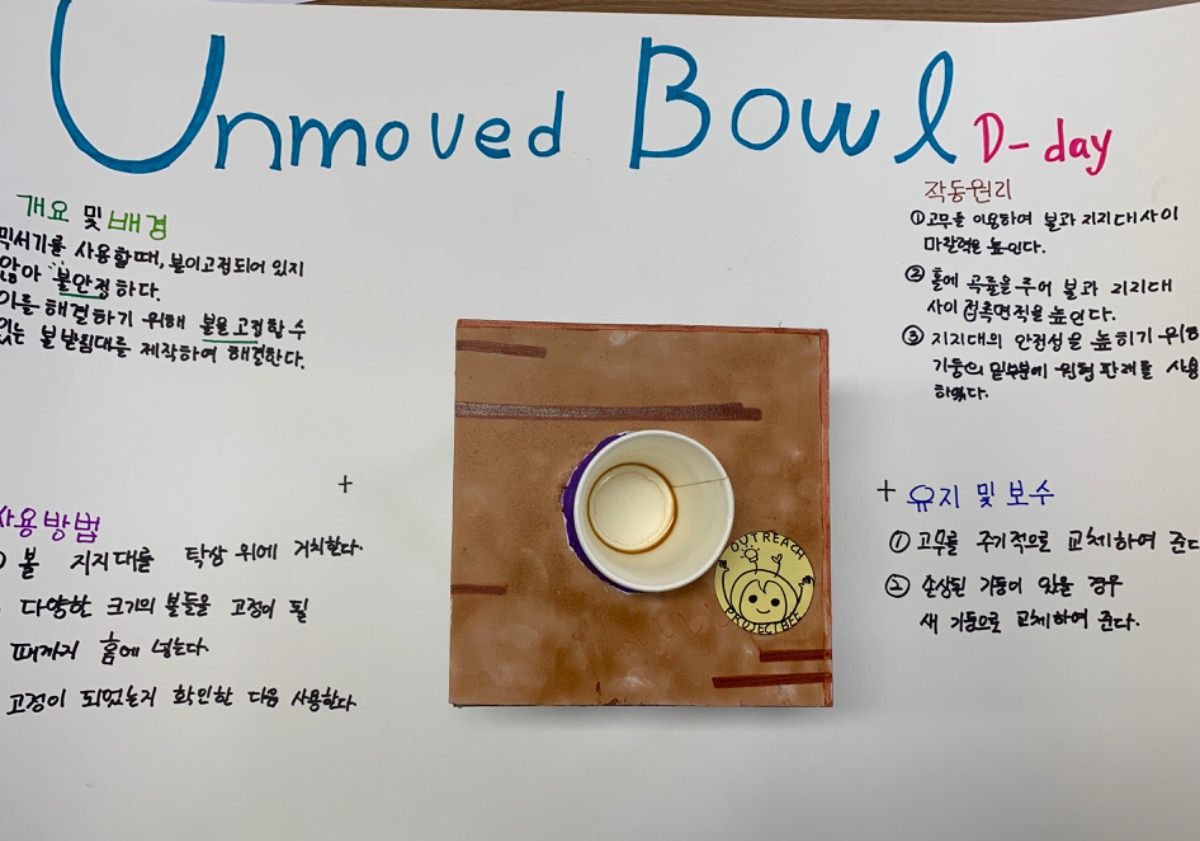 Unmoved Bowl D-day
개요 및 배경
믹서기를 사용할때, 볼이고정되어 있지
않아 불안정하다.
이를 해결하기 위해 볼을 고정할 수
있는 볼받침대를 제작하여 해결한다.
+
사용방법
볼 지지대를 탁상 위에 거치한다.
다양한 크기의 볼들을 고정이 될
때까지 홈에 넣는다.
고정이 되었는지 확인한 다음 사용한다.
OUTREACH
PROJECT BEE
작동원리
① 고무를 이용하여 볼과 지지대사이
마찰력을 높인다.
② 홀에 곡률을 주어 볼과 지지대
사이 접촉면적을 높인다.
③ 지지대의 안정성을 높히기 위해
기둥의 밑부분에 원형 판래를 사용
하였다.
+ 유지 및 보수
① 고무를 주기적으로 교체하여 준다
② 손상된 기둥이 있을 경우
새 기둥으로 교체하여 준다.